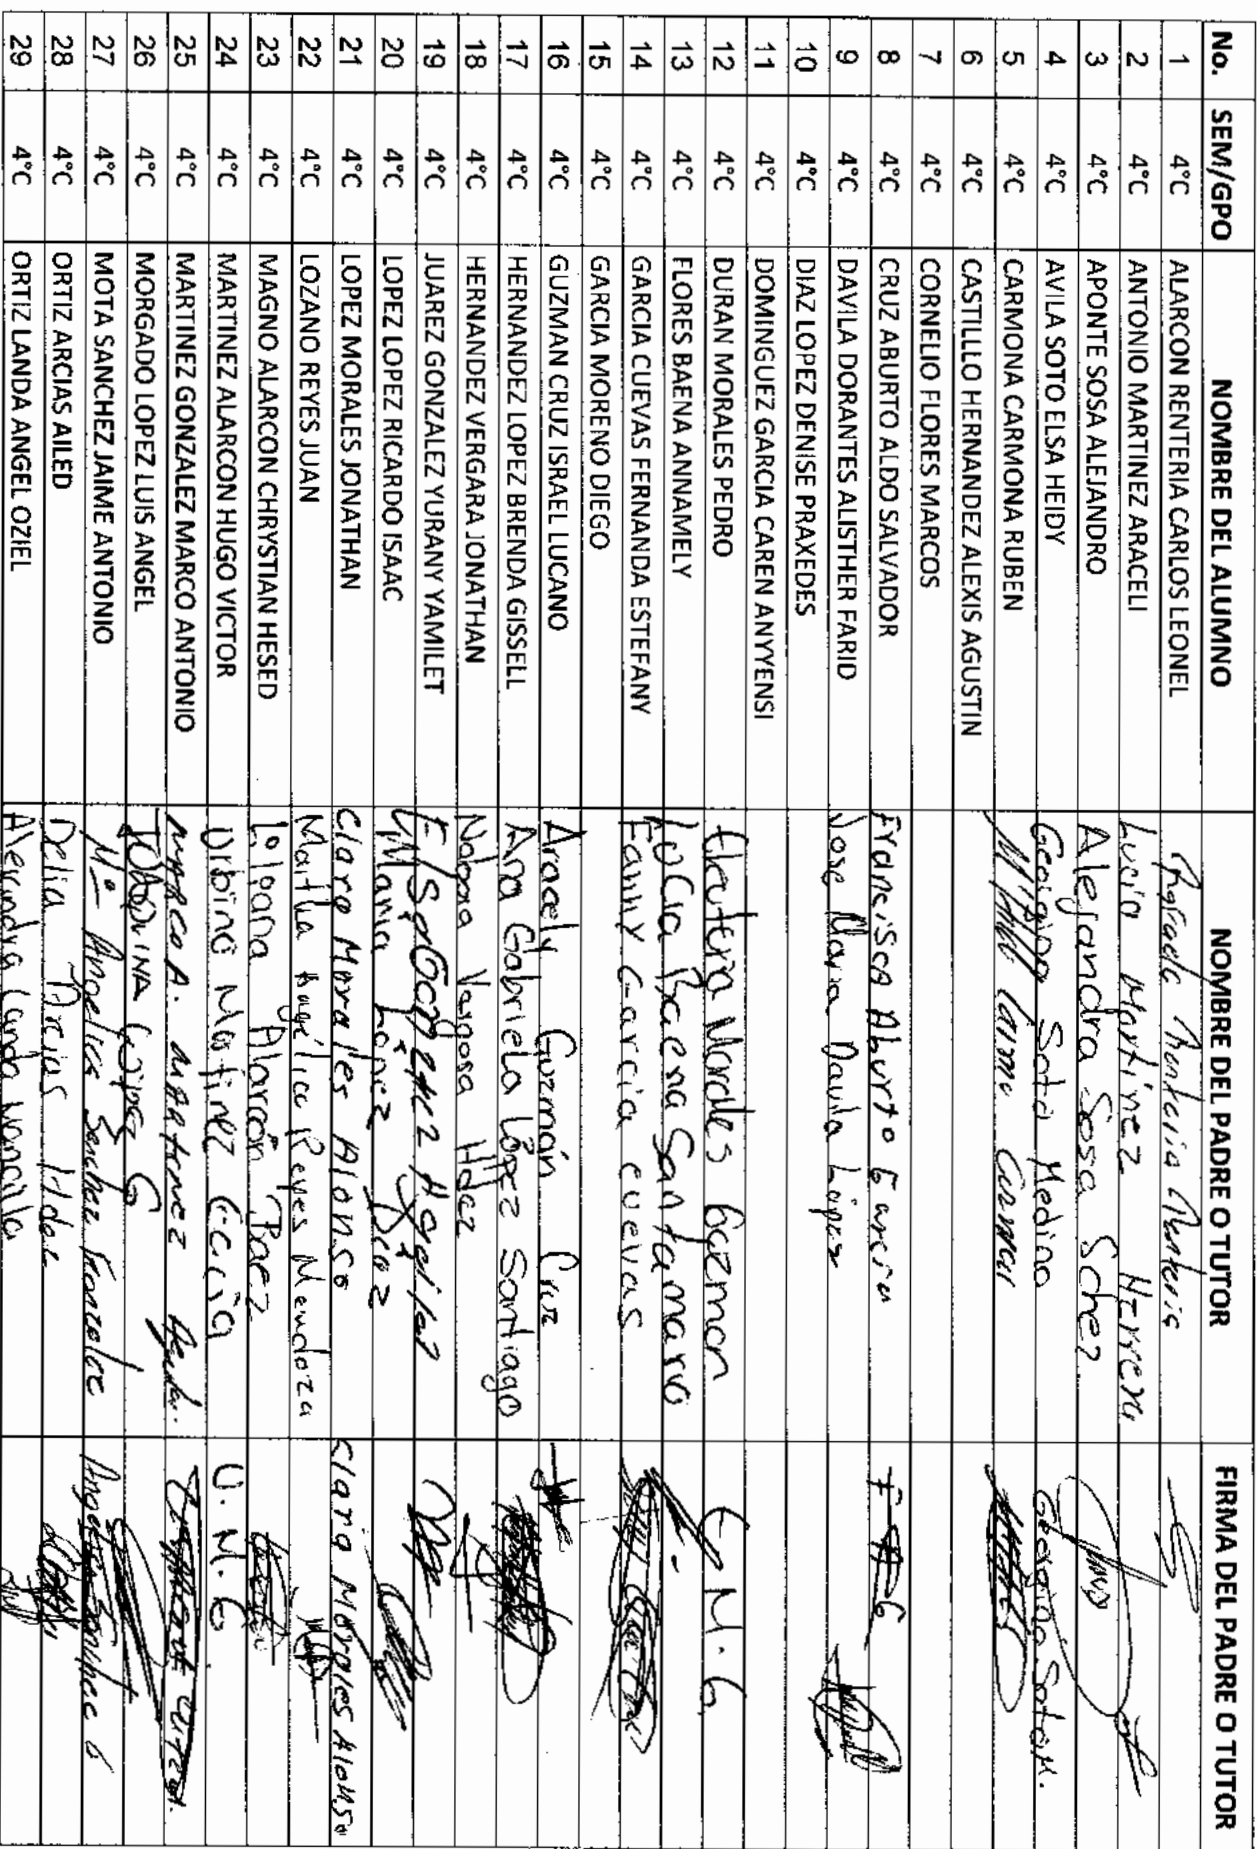 No. SEM/GPO NOMBRE DEL ALUMNO NOMBRE DEL PADRE O TUTOR FIRMA DEL PADRE O TUTOR
1 4°C ALARCON RENTERIA CARLOS LEONEL
2 4°C ANTONIO MARTINEZ ARACELI Lucia Martinez Herrera
3 4°C APONTE SOSA ALEJANDRO Alejandra Sosa Schez
4 4°C AVILA SOTO ELSA HEIDY Georgina Soto Medina Georgina Soto M.
5 4°C CARMONA CARMONA RUBEN
6 4°C CASTILLLO HERNANDEZ ALEXIS AGUSTIN
7 4°C CORNELIO FLORES MARCOS
8 4°C CRUZ ABURTO ALDO SALVADOR Francisca Aburto Garcia F A G
9 4°C DAVILA DORANTES ALISTHER FARID Jose Maria Davila López
10 4°C DIAZ LOPEZ DENISE PRAXEDES
11 4°C DOMINGUEZ GARCIA CAREN ANYYENSI
12 4°C DURAN MORALES PEDRO Eleuteria Morales Guzman E M. G
13 4°C FLORES BAENA ANNAMELY Lucia Baena Santamaria
14 4°C GARCIA CUEVAS FERNANDA ESTEFANY Fanny Garcia cuevas
15 4°C GARCIA MORENO DIEGO
16 4°C GUZMAN CRUZ ISRAEL LUCANO Aracely Guzmán Cruz
17 4°C HERNANDEZ LOPEZ BRENDA GISSELL Ana Gabriela López Santiago
18 4°C HERNANDEZ VERGARA JONATHAN Hdez
19 4°C JUAREZ GONZALEZ YURANY YAMILET
20 4°C LOPEZ LOPEZ RICARDO ISAAC Maria López Díaz
21 4°C LOPEZ MORALES JONATHAN Clara Morales Alonso Clara Morales Alonso
22 4°C LOZANO REYES JUAN Martha Angélica Reyes Mendoza
23 4°C MAGNO ALARCON CHRYSTIAN HESED Alarcón Baez
24 4°C MARTINEZ ALARCON HUGO VICTOR Urbino Martinez U. M. G
25 4°C MARTINEZ GONZALEZ MARCO ANTONIO Marco A. Martinez
26 4°C MORGADO LOPEZ LUIS ANGEL
27 4°C MOTA SANCHEZ JAIME ANTONIO Mª Angelica Sanchez
28 4°C ORTIZ ARCIAS AILED Delia Arcias Hdez
29 4°C ORTIZ LANDA ANGEL OZIEL Alejandra Landa